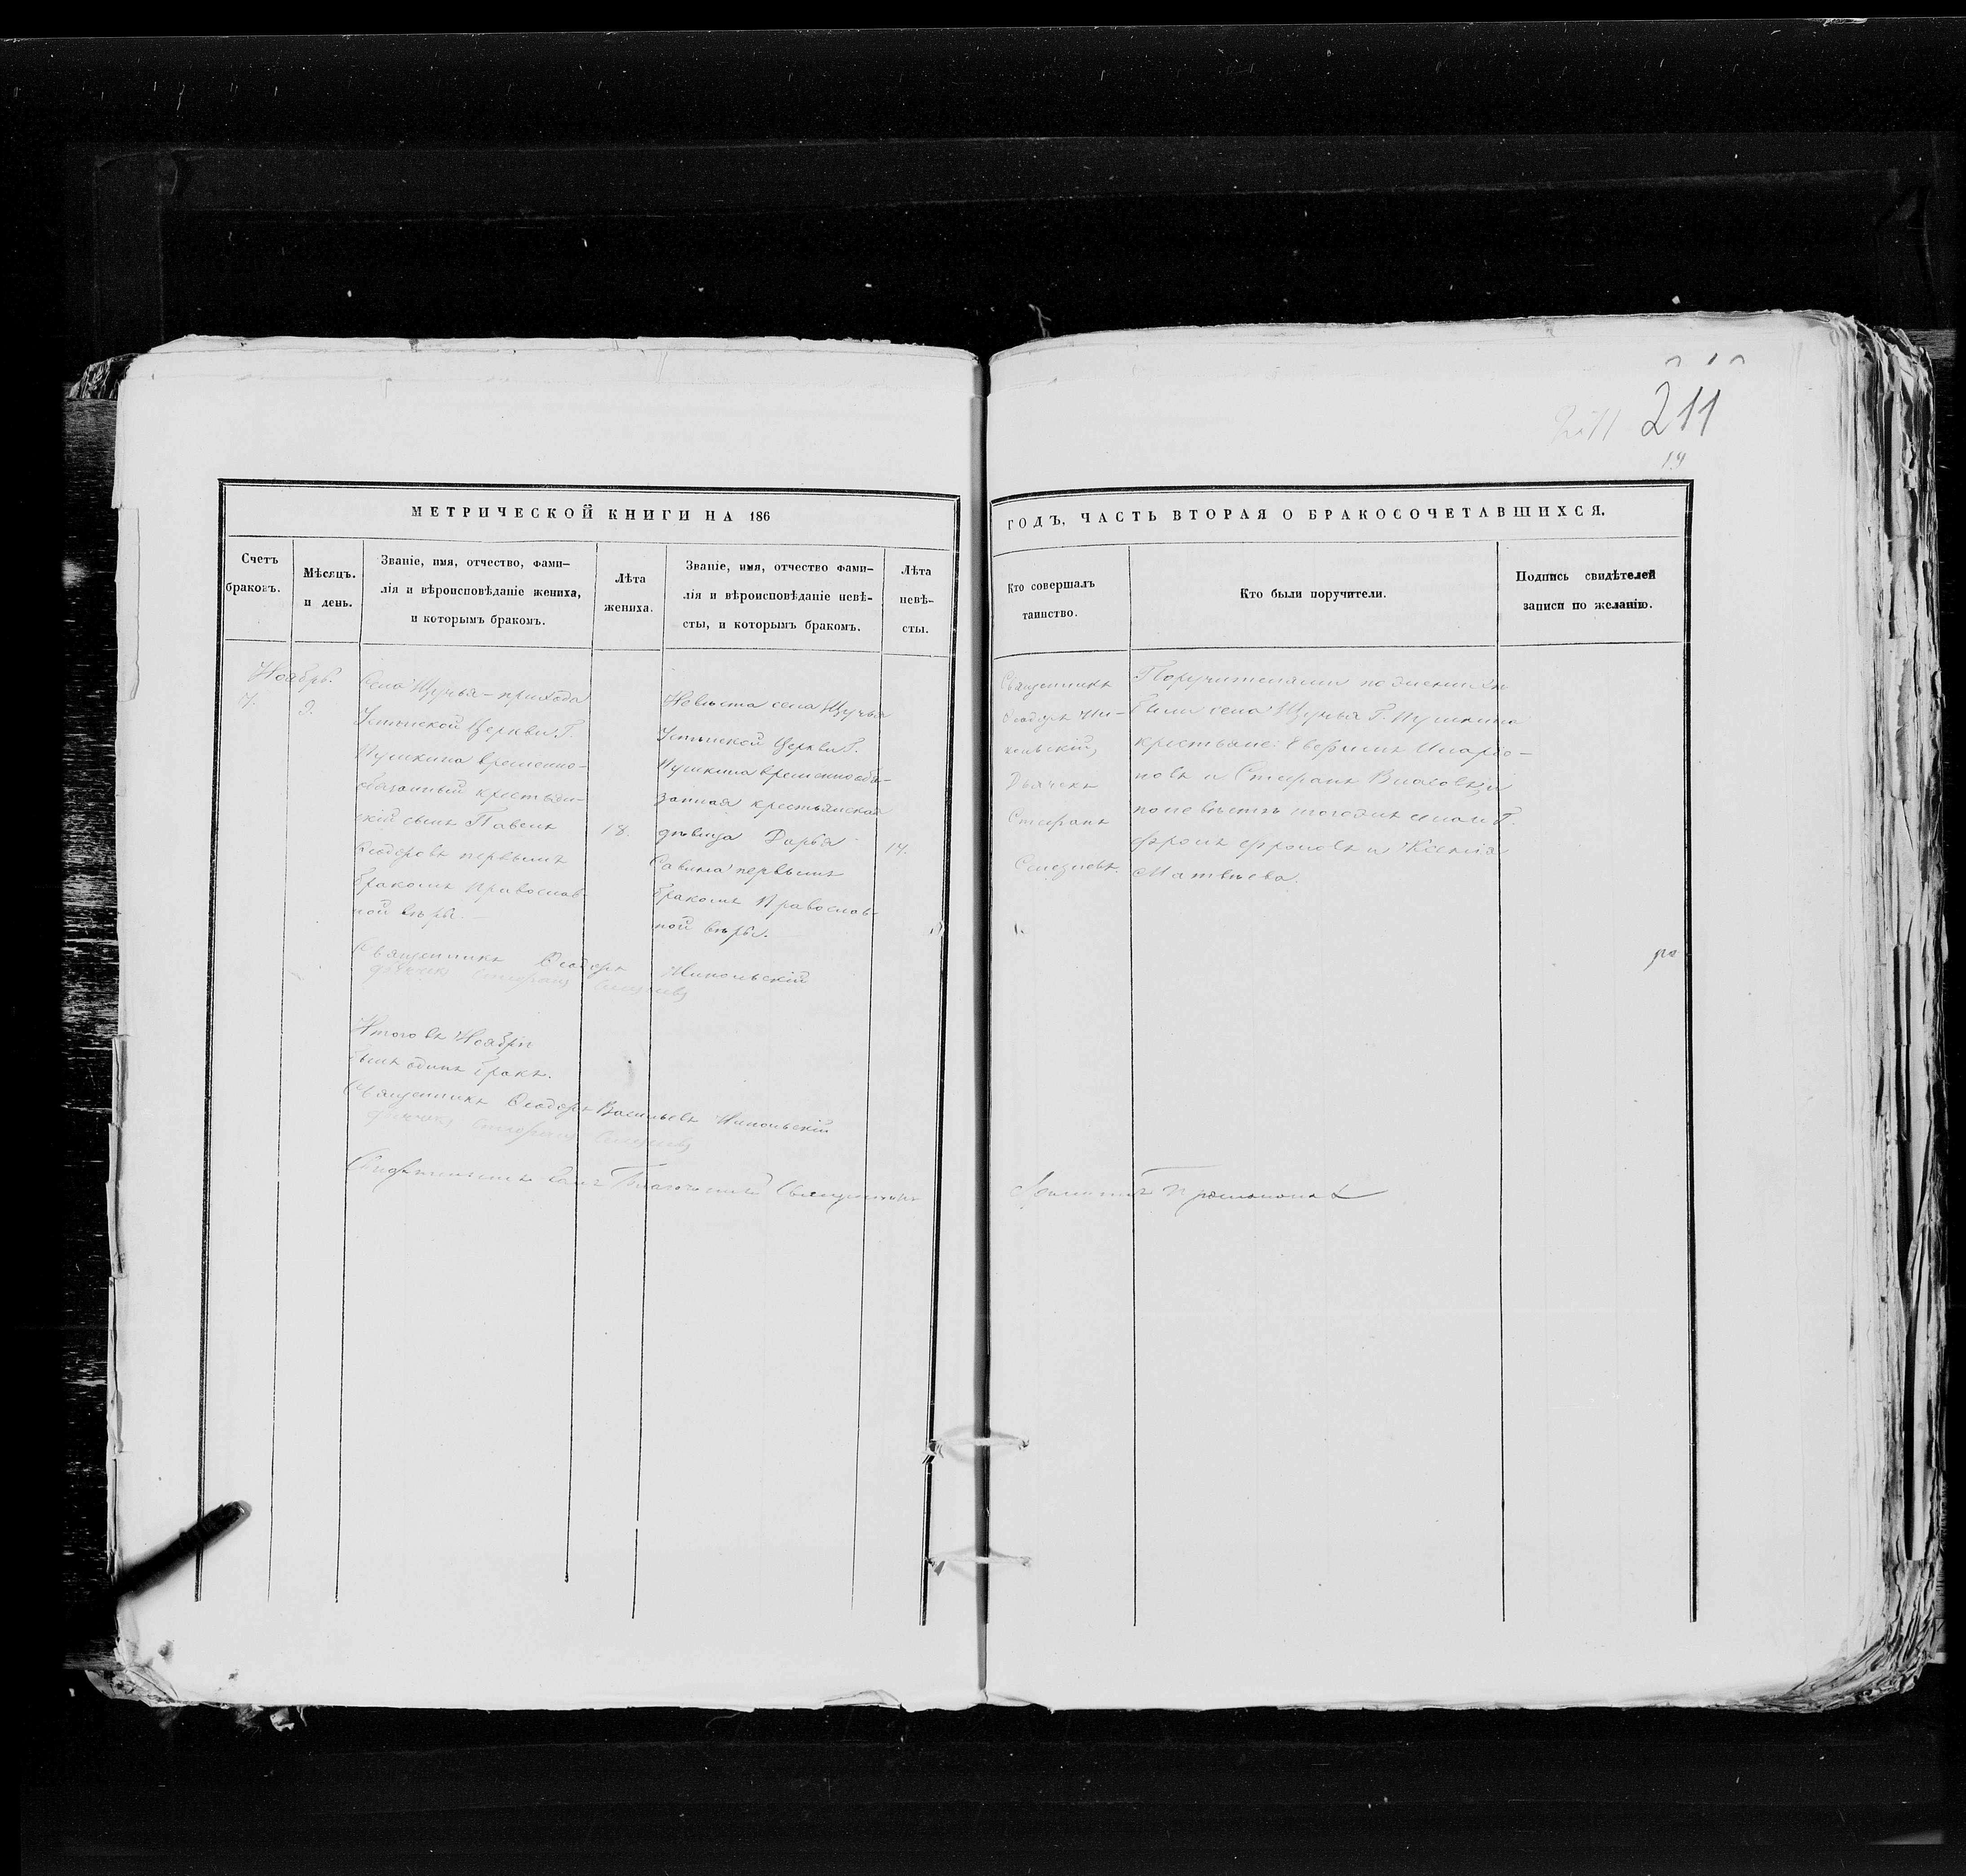 211
211
19
МЕТРИЧЕСКОЙ КНИГИ НА 186
ГОДЪ, ЧАСТЬ ВТОРАЯ О БРАКОСОЧЕТАВШИХСЯ.
Счетъ
браковъ.
Мѣсяцъ.
и день.
Званіе, имя, отчество, фами-
лія и вѣроисповѣданіе жениха,
и которымъ бракомъ.
Лѣта
жениха.
Званіе, имя, отчество фами-
лія и вѣроисповѣданіе невѣ-
сты, и которымъ бракомъ.
Лѣта
невѣ-
сты.
Кто совершалъ
таинство.
Кто были поручители.
Подпись свидѣтелей
записи по желанію.
Ноябрь.
7.
9.
Села Щучья-прихода
Успѣнской Церкви Г.
Пушкина временно-
обязанный крестьян-
скій сынъ Павелъ
Ѳеодоровъ первымъ
бракомъ православ-
ной вѣры.
18.
Невѣста села Щучья
Успѣнской Церкви Г.
Пушкина временнообя-
занная крестьянская
дѣвица Дарья
Савина первымъ
бракомъ Православ-
ной вѣры.
17.
Священникъ
Ѳеодоръ Ни-
кольскій,
Дьячекъ
Стефанъ
Селезневъ.
Поручителями по женихѣ
были села Щучья Г. Пушкина
крестьяне: Евфимъ Иларіо-
новъ и Стефанъ Власовъ; и
по невѣстѣ тогожъ села и Г.
Фролъ Фроловъ и Ксенія
Матвѣева.
Священникъ Ѳеодоръ Никольскій
Дьячекъ Стефанъ Селезневъ
Итого въ Ноябрѣ
былъ одинъ бракъ.
Священникъ Ѳеодоръ Васильевъ Никольскій
Дьячекъ Стефанъ Селезневъ
Благочинный Священникъ